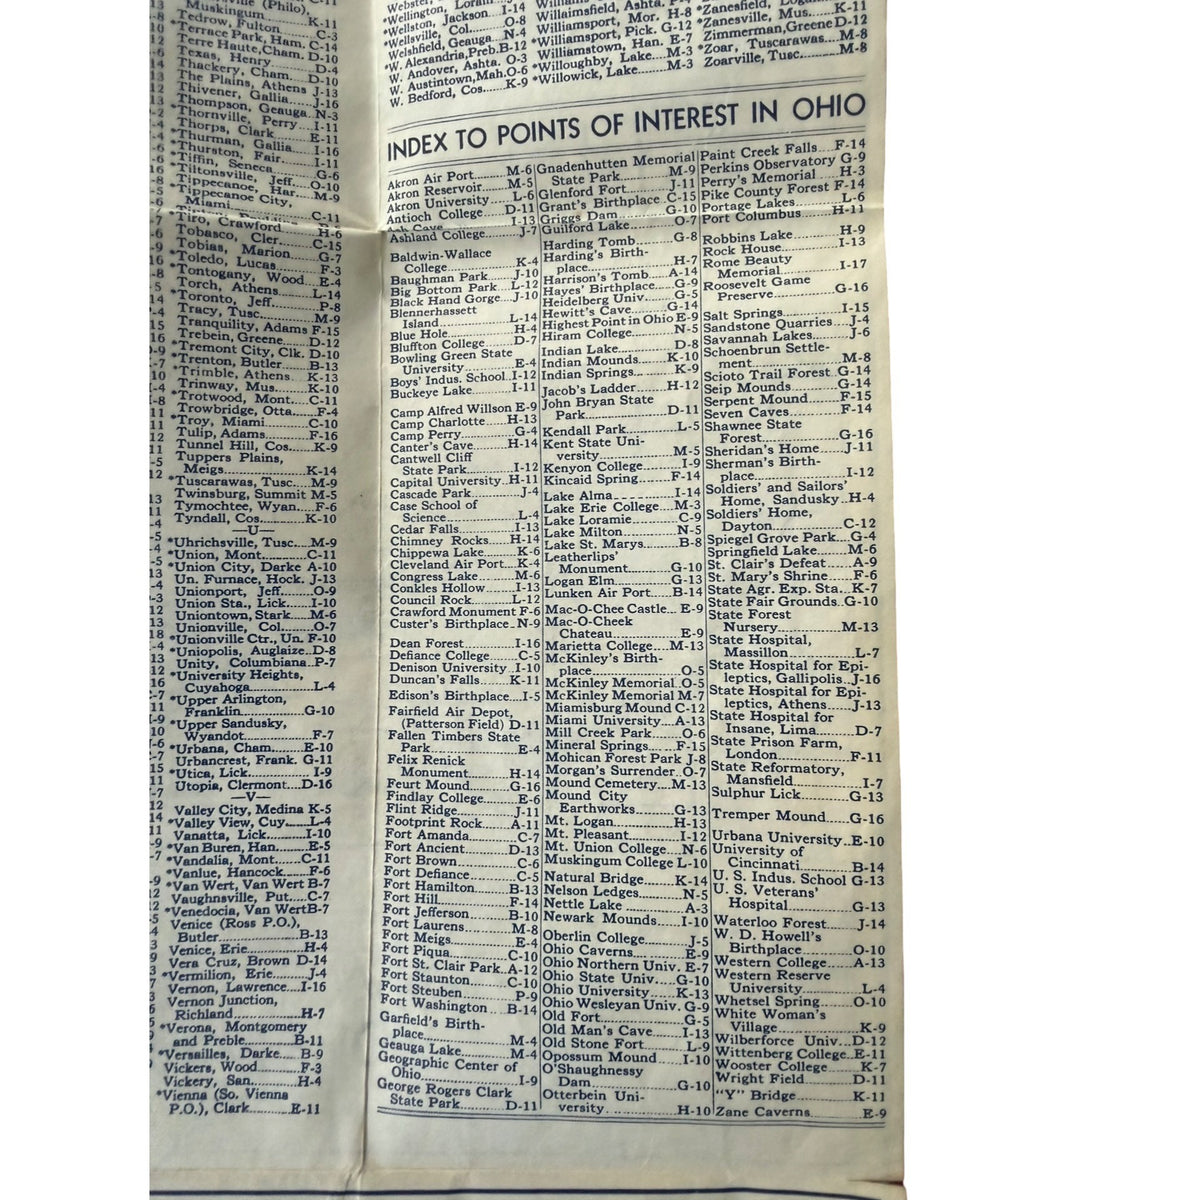 (Philo),
Muskingum......K-11
Tedrow, Fulton......C-3
*Terrace Park, Ham. C-14
Terre Haute,Cham. D-10
Texas, Henry......D-4
Thackery, Cham.....D-10
The Plains, Athens J-13
Thivener, Gallia......J-16
Thompson, Geauga..N-3
*Thornville, Perry....I-11
Thorps, Clark.........E-11
*Thurman, Gallia......I-16
*Thurston, Fair........I-11
*Tiffin, Seneca.........G-6
*Tiltonsville, Jeff.....O-10
Tippecanoe, Har......M-9
*Tippecanoe City,
Miami...............C-11
*Tiro, Crawford......H-6
Tobasco, Cler.........C-15
Tobias, Marion......G-7
*Toledo, Lucas.........F-3
*Tontogany, Wood...E-4
Torch, Athens........L-14
*Toronto, Jeff..........P-8
Tracy, Tusc............M-9
Tranquility, Adams F-15
Trebein, Greene......D-12
*Tremont City, Clk. D-10
*Trenton, Butler......B-13
*Trimble, Athens...K-13
Trinway, Mus.........K-10
*Trotwood, Mont.....C-11
Trowbridge, Otta.....F-4
*Troy, Miami..........C-10
Tulip, Adams.........F-16
Tunnel Hill, Cos.....K-9
Tuppers Plains,
Meigs................K-14
*Tuscarawas, Tusc...M-9
Twinsburg, Summit M-5
Tymochtee, Wyan....F-6
Tyndall, Cos...........K-10
—U—
*Uhrichsville, Tusc...M-9
*Union, Mont..........C-11
*Union City, Darke A-10
Un. Furnace, Hock. J-13
Unionport, Jeff........O-9
Union Sta., Lick......I-10
Uniontown, Stark.....M-6
Unionville, Col........O-7
*Unionville Ctr., Un. F-10
*Uniopolis, Auglaize..D-8
Unity, Columbiana..P-7
*University Heights,
Cuyahoga...........L-4
*Upper Arlington,
Franklin.............G-10
*Upper Sandusky,
Wyandot............F-7
*Urbana, Cham.......E-10
Urbancrest, Frank. G-11
*Utica, Lick.............I-9
Utopia, Clermont....D-16
—V—
Valley City, Medina K-5
*Valley View, Cuy.....L-4
Vanatta, Lick.........I-10
*Van Buren, Han......E-5
*Vandalia, Mont......C-11
*Vanlue, Hancock.....F-6
*Van Wert, Van Wert B-7
Vaughnsville, Put....C-7
*Venedocia, Van WertB-7
Venice (Ross P.O.),
Butler................B-13
Venice, Erie............H-4
Vera Cruz, Brown D-14
*Vermilion, Erie........J-4
Vernon, Lawrence....I-16
Vernon Junction,
Richland............H-7
*Verona, Montgomery
and Preble..........B-11
*Versailles, Darke.....B-9
Vickers, Wood........F-3
Vickery, San...........H-4
*Vienna (So. Vienna
P.O.), Clark........E-11
*Wellington, Lorain
*Wellston, Jackson...I-14
*Wellsville, Col........O-8
Welshfield, Geauga..N-4
*W. Alexandria,Preb.B-12
W. Andover, Ashta. O-3
W. Austintown,Mah.O-6
W. Bedford, Cos......K-9
Williamsfield, Ashta.
Williamsport, Mor. H-8
*Williamsport, Pick. G-12
Williamstown, Han. E-7
*Willoughby, Lake....M-3
*Willowick, Lake......M-3
*Zanesfield,
*Zanesville, Mus......K-11
Zimmerman,Greene D-12
*Zoar, Tuscarawas....M-8
Zoarville, Tusc........M-8
INDEX TO POINTS OF INTEREST IN OHIO
Akron Air Port........M-6
Akron Reservoir......M-5
Akron University.....L-6
Antioch College......D-11
Ash Cave...............I-13
Ashland College......J-7
Baldwin-Wallace
College..............K-4
Baughman Park......J-10
Big Bottom Park....L-12
Black Hand Gorge...J-10
Blennerhassett
Island................L-14
Blue Hole..............H-4
Bluffton College......D-7
Bowling Green State
University...........E-4
Boys' Indus. School..I-12
Buckeye Lake.........I-11
Camp Alfred Willson E-9
Camp Charlotte.....H-13
Camp Perry...........G-4
Canter's Cave.........H-14
Cantwell Cliff
State Park..........I-12
Capital University..H-11
Cascade Park.........J-4
Case School of
Science..............L-4
Cedar Falls............I-13
Chimney Rocks.......H-14
Chippewa Lake.......K-6
Cleveland Air Port...K-4
Congress Lake........M-6
Conkles Hollow.......I-13
Council Rock..........L-12
Crawford Monument F-6
Custer's Birthplace..N-9
Dean Forest...........I-16
Defiance College......C-5
Denison University..I-10
Duncan's Falls........K-11
Edison's Birthplace....I-5
Fairfield Air Depot,
(Patterson Field) D-11
Fallen Timbers State
Park.................E-4
Felix Renick
Monument..........H-14
Feurt Mound..........G-16
Findlay College.......E-6
Flint Ridge............J-11
Footprint Rock.......A-11
Fort Amanda..........C-7
Fort Ancient..........D-13
Fort Brown............C-6
Fort Defiance.........C-5
Fort Hamilton........B-13
Fort Hill...............F-14
Fort Jefferson........B-10
Fort Laurens..........M-8
Fort Meigs............E-4
Fort Piqua............C-10
Fort St. Clair Park..A-12
Fort Staunton.........C-10
Fort Steuben..........P-9
Fort Washington.....B-14
Garfield's Birth-
place.................M-4
Geauga Lake..........M-4
Geographic Center of
Ohio..................I-9
George Rogers Clark
State Park..........D-11
Gnadenhutten Memorial
State Park..........M-9
Glenford Fort.........J-11
Grant's Birthplace..C-15
Griggs Dam...........G-10
Guilford Lake.........O-7
Harding Tomb........G-8
Harding's Birth-
place.................H-7
Harrison's Tomb.....A-14
Hayes' Birthplace...G-9
Heidelberg Univ......G-5
Hewitt's Cave.........G-14
Highest Point in Ohio E-9
Hiram College........N-5
Indian Lake...........D-8
Indian Mounds.......K-10
Indian Springs........K-9
Jacob's Ladder.......H-12
John Bryan State
Park.................D-11
Kendall Park..........L-5
Kent State Uni-
versity...............M-5
Kenyon College.......I-9
Kincaid Spring.......F-14
Lake Alma............I-14
Lake Erie College....M-3
Lake Loramie.........C-9
Lake Milton...........N-5
Lake St. Marys.......B-8
Leatherlips'
Monument..........G-10
Logan Elm............G-13
Lunken Air Port.....B-14
Mac-O-Chee Castle...E-9
Mac-O-Cheek
Chateau.............E-9
Marietta College.....M-13
McKinley's Birth-
place.................O-5
McKinley Memorial..O-5
McKinley Memorial M-7
Miamisburg Mound C-12
Miami University....A-13
Mill Creek Park......O-6
Mineral Springs......F-15
Mohican Forest Park J-8
Morgan's Surrender..O-7
Mound Cemetery....M-13
Mound City
Earthworks.........G-13
Mt. Logan.............H-13
Mt. Pleasant..........I-12
Mt. Union College...N-6
Muskingum College L-10
Natural Bridge.......K-14
Nelson Ledges........N-5
Nettle Lake...........A-3
Newark Mounds.....I-10
Oberlin College.......J-5
Ohio Caverns.........E-9
Ohio Northern Univ. E-7
Ohio State Univ......G-10
Ohio University......K-13
Ohio Wesleyan Univ. G-9
Old Fort...............G-5
Old Man's Cave......I-13
Old Stone Fort.......L-9
Opossum Mound.....I-10
O'Shaughnessy
Dam.................G-10
Otterbein Uni-
versity..............H-10
Paint Creek Falls....F-14
Perkins Observatory G-9
Perry's Memorial.....H-3
Pike County Forest F-14
Portage Lakes........L-6
Port Columbus.......H-11
Robbins Lake.........H-9
Rock House...........I-13
Rome Beauty
Memorial............I-17
Roosevelt Game
Preserve............G-16
Salt Springs...........I-15
Sandstone Quarries...J-4
Savannah Lakes......J-6
Schoenbrun Settle-
ment.................M-8
Scioto Trail Forest..G-14
Seip Mounds..........G-14
Serpent Mound.......F-15
Seven Caves..........F-14
Shawnee State
Forest...............G-16
Sheridan's Home.....J-11
Sherman's Birth-
place.................I-12
Soldiers' and Sailors'
Home, Sandusky..H-4
Soldiers' Home,
Dayton..............C-12
Spiegel Grove Park...G-4
Springfield Lake.....M-6
St. Clair's Defeat.....A-9
St. Mary's Shrine....F-6
State Agr. Exp. Sta...K-7
State Fair Grounds..G-10
State Forest
Nursery.............M-13
State Hospital,
Massillon............L-7
State Hospital for Epi-
leptics, Gallipolis..J-16
State Hospital for Epi-
leptics, Athens.....J-13
State Hospital for
Insane, Lima.......D-7
State Prison Farm,
London..............F-11
State Reformatory,
Mansfield...........I-7
Sulphur Lick.........G-13
Tremper Mound.....G-16
Urbana University...E-10
University of
Cincinnati..........B-14
U. S. Indus. School G-13
U. S. Veterans'
Hospital............G-13
Waterloo Forest......J-14
W. D. Howell's
Birthplace..........O-10
Western College......A-13
Western Reserve
University..........L-4
Whetsel Spring......O-10
White Woman's
Village..............K-9
Wilberforce Univ....D-12
Wittenberg College..E-11
Wooster College......K-7
Wright Field..........D-11
"Y" Bridge............K-11
Zane Caverns.........E-9